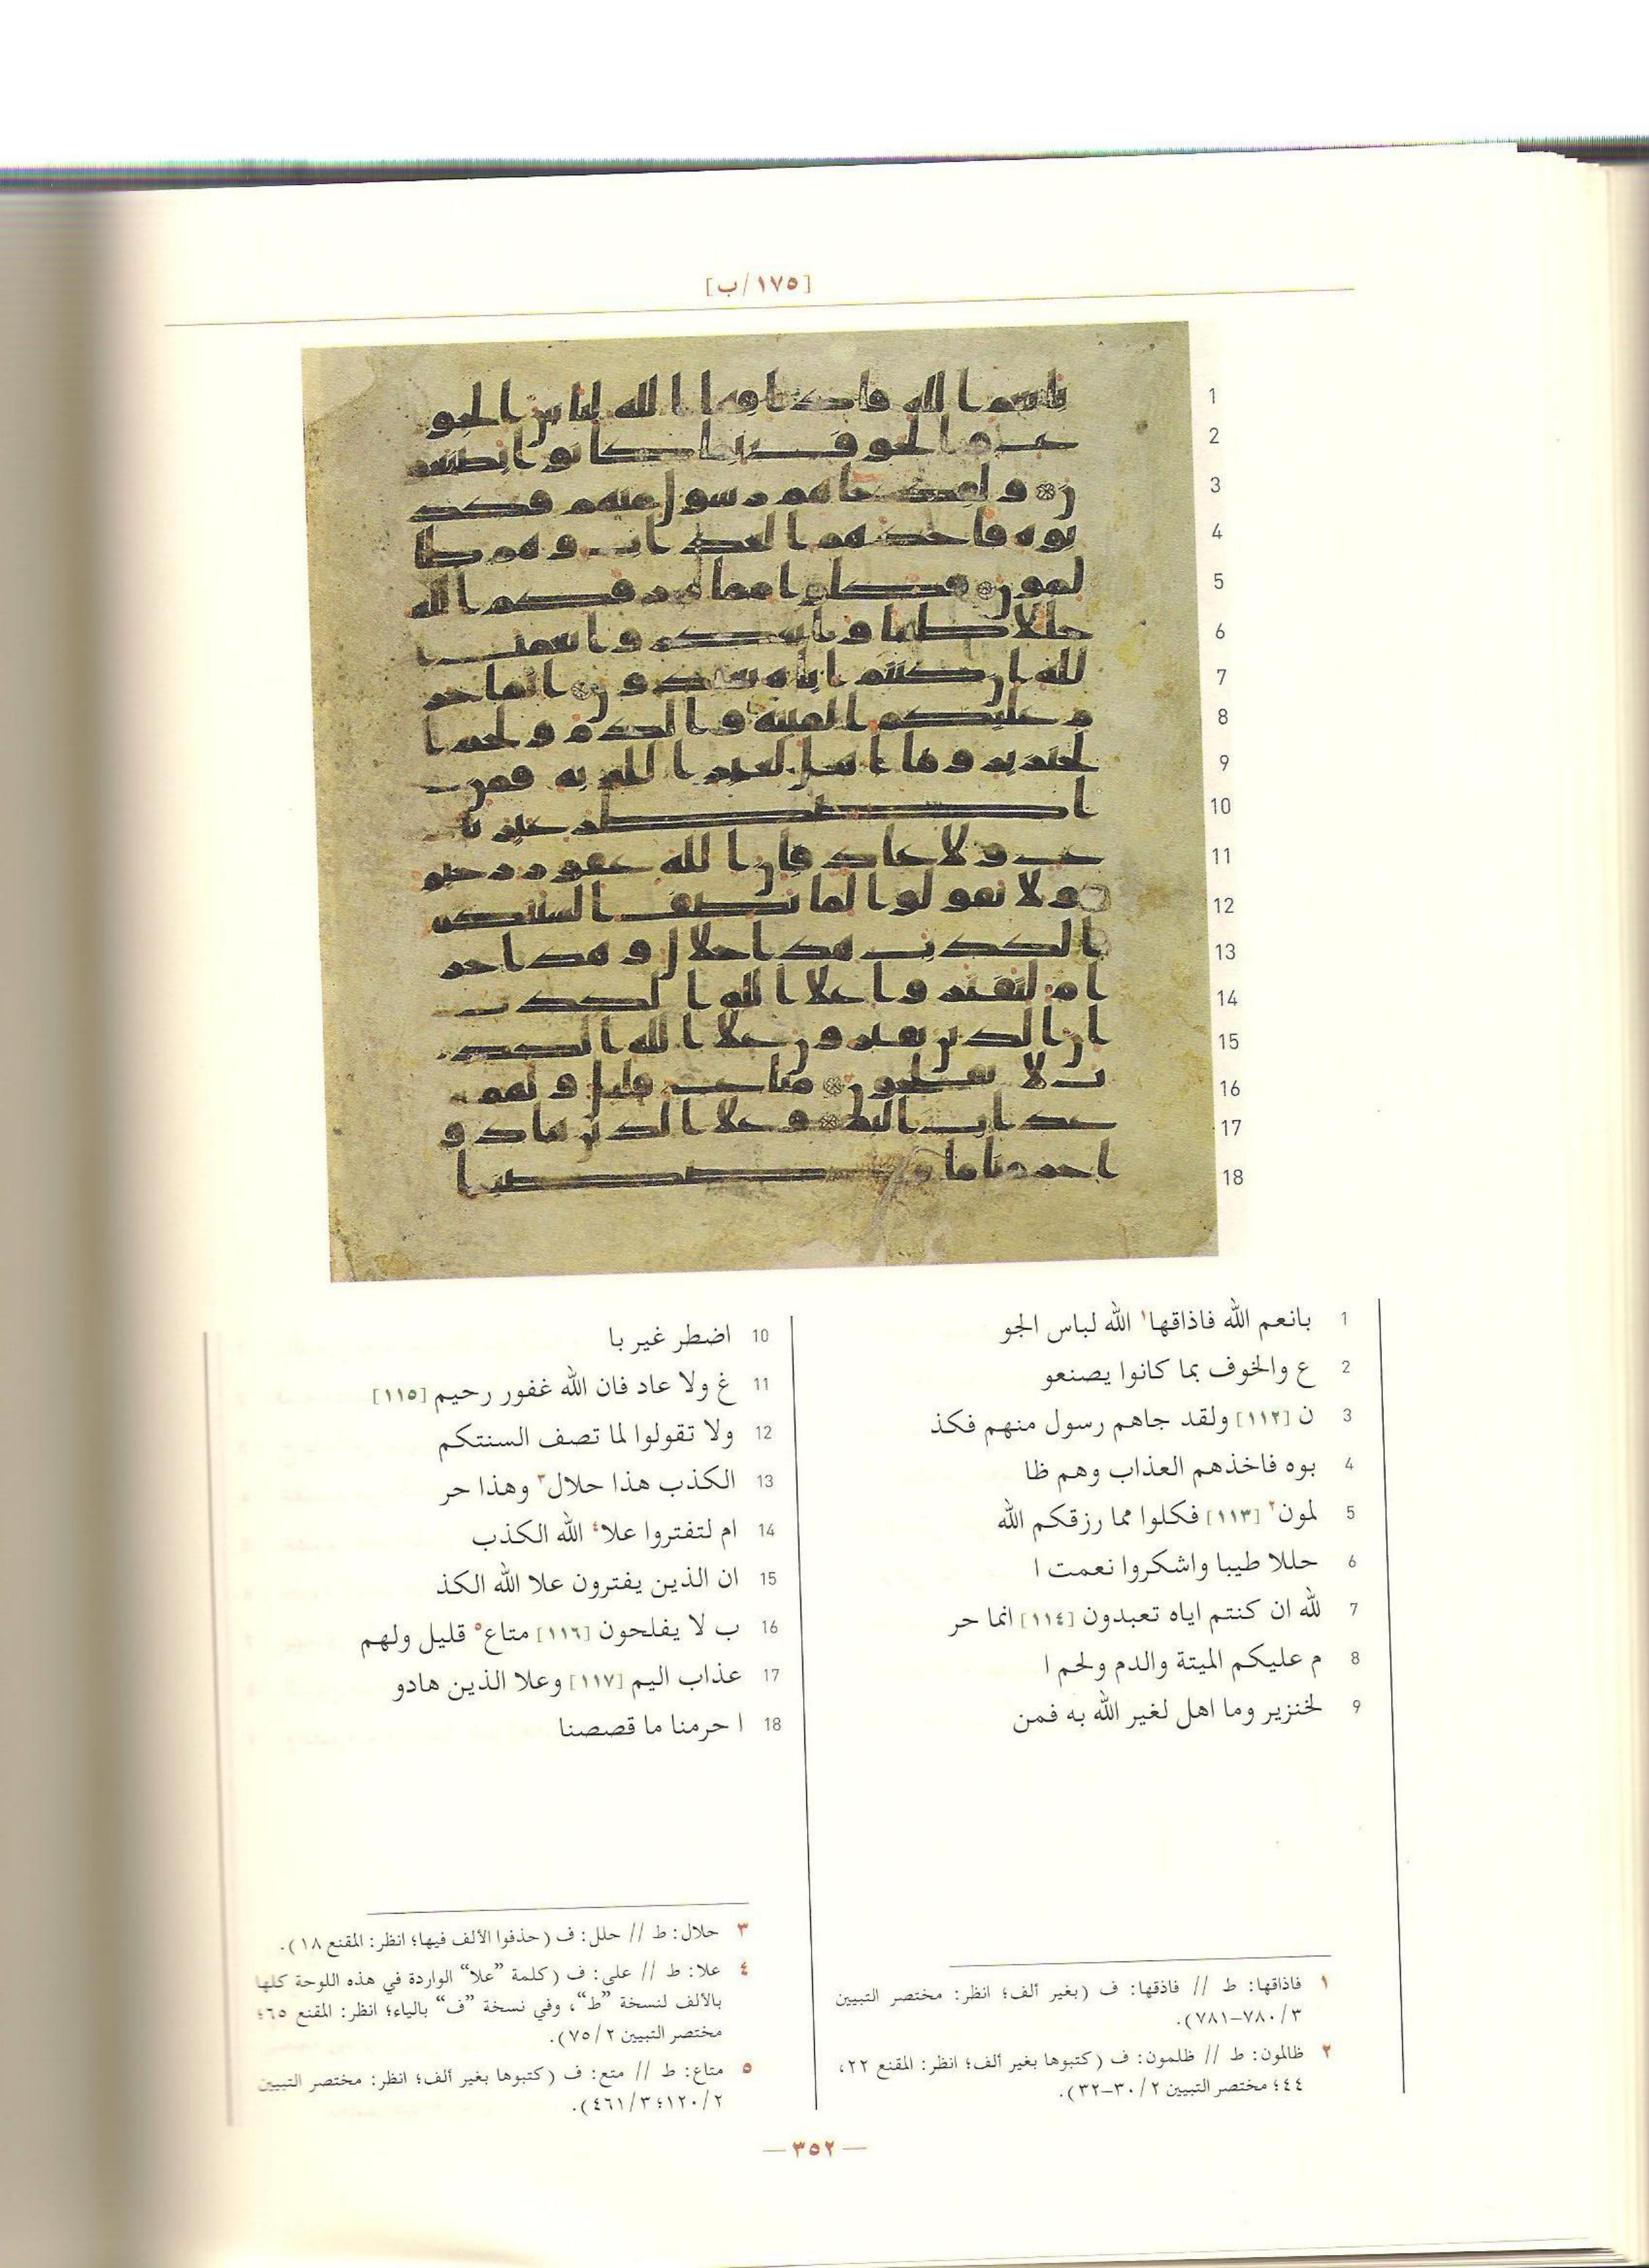 [١٧٥/ب]
1
2
3
4
5
6
7
8
9
10
11
12
13
14
15
16
17
18
1 بانعم الله فاذاقها١ الله لباس الجو
2 ع والخوف بما كانوا يصنعو
3 ن [١١٢] ولقد جاهم رسول منهم فكذ
4 بوه فاخذهم العذاب وهم ظا
5 لمون٢ [١١٣] فكلوا مما رزقكم الله
6 حللا طيبا واشكروا نعمت ا
7 لله ان كنتم اياه تعبدون [١١٤] انما حر
8 م عليكم الميتة والدم ولحم ا
9 لخنزير وما اهل لغير الله به فمن
10 اضطر غير با
11 غ ولا عاد فان الله غفور رحيم [١١٥]
12 ولا تقولوا لما تصف السنتكم
13 الكذب هذا حلال٣ وهذا حر
14 ام لتفتروا علا٤ الله الكذب
15 ان الذين يفترون علا الله الكذ
16 ب لا يفلحون [١١٦] متاع٥ قليل ولهم
17 عذاب اليم [١١٧] وعلا الذين هادو
18 ا حرمنا ما قصصنا
١ فاذاقها: ط // فاذقها: ف (بغير ألف؛ انظر: مختصر التبيين
٣/٧٨٠–٧٨١).
٢ ظالمون: ط // ظلمون: ف (كتبوها بغير ألف؛ انظر: المقنع ٢٢،
٤٤؛ مختصر التبيين ٢/٣٠–٣٢).
٣ حلال: ط // حلل: ف (حذفوا الألف فيها؛ انظر: المقنع ١٨).
٤ علا: ط // على: ف (كلمة ”علا“ الواردة في هذه اللوحة كلها
بالألف لنسخة ”ط“، وفي نسخة ”ف“ بالياء؛ انظر: المقنع ٦٥؛
مختصر التبيين ٢/٧٥).
٥ متاع: ط // متع: ف (كتبوها بغير ألف؛ انظر: مختصر التبيين
٢/١٢٠؛ ٣/٤٦١).
— ٣٥٢ —